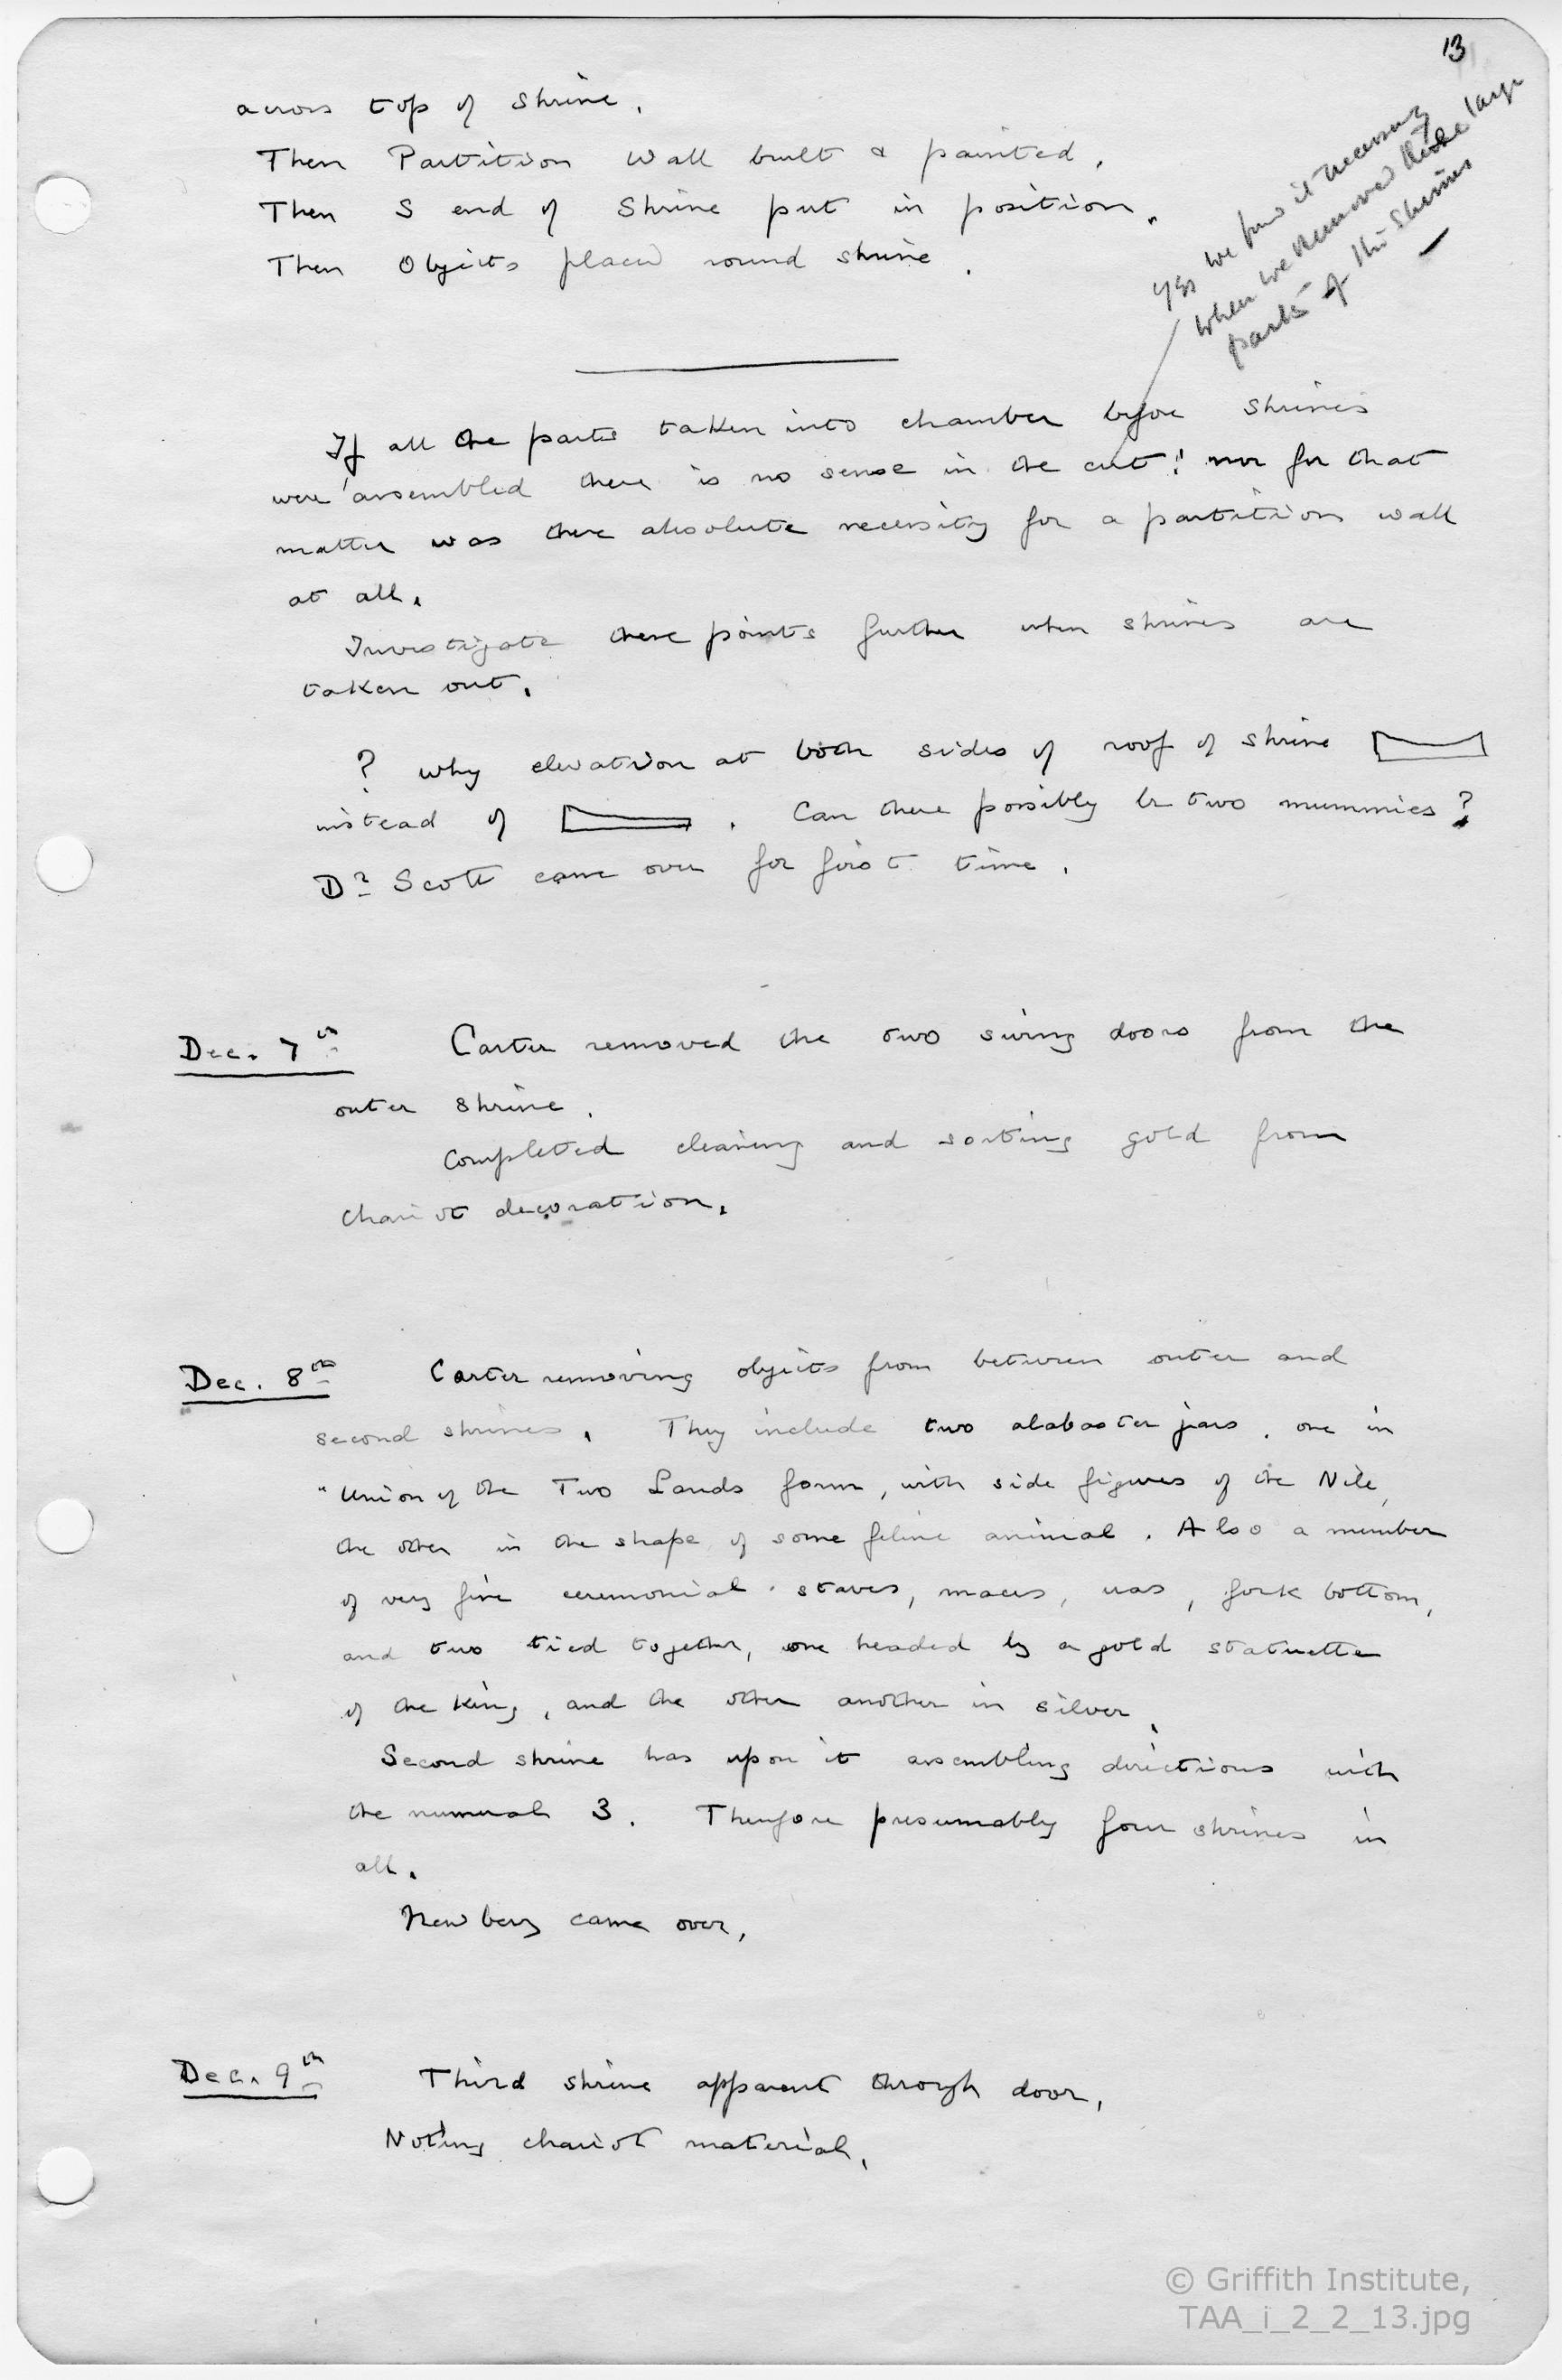 13
across top of shrine.
Then Partition Wall built & painted.
Then S end of Shrine put in position.
Then Objects placed round shrine.
yes we find it necessary
when we removed these large
parts of the Shrines
If all the parts taken into chamber before shrines
were assembled there is no sense in the cut! nor for that
matter was there absolute necessity for a partition wall
at all.
Investigate these points further when shrines are
taken out.
? why elevation at both sides of roof of shrine
instead of . Can there possibly be two mummies?
Dr Scott came over for first time.
Dec. 7th Carter removed the two swing doors from the
outer shrine.
Completed cleaning and sorting gold from
chariot decoration.
Dec. 8th Carter removing objects from between outer and
second shrines. They include two alabaster jars, one in
"Union of the Two Lands form, with side figures of the Nile,
the other in the shape of some feline animal. Also a number
of very fine ceremonial staves, maces, uas, fork bottom,
and two tied together, one headed by a gold statuette
of the King, and the other another in silver.
Second shrine has upon it assembling directions with
the numeral 3. Therefore presumably four shrines in
all.
Newberry came over.
Dec. 9th Third shrine apparent through door.
Noting chariot material.
© Griffith Institute,
TAA_i_2_2_13.jpg